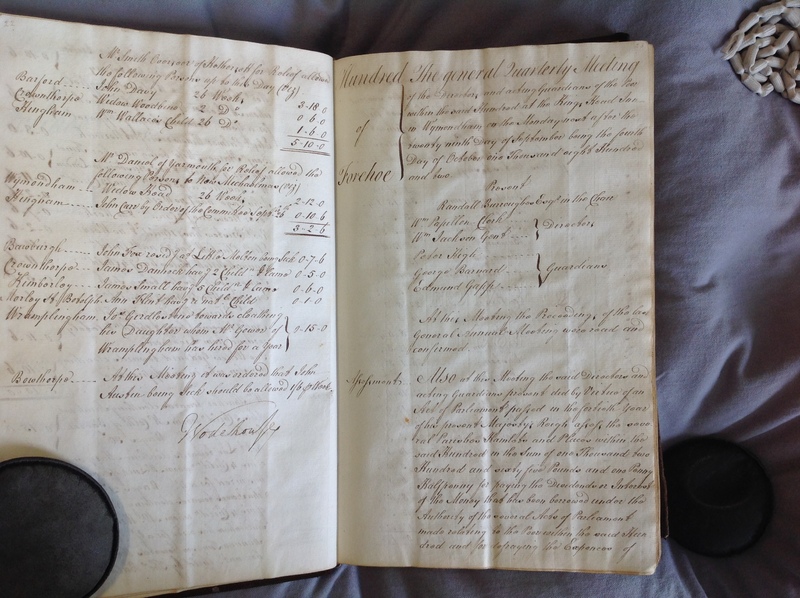 Mr. Smith Governor of Rotherwell for Relief allowed
the following Persons up to this Day (Viz)
Barford John Davy 26 Weeks 3-18-0
Crownthorpe Widow Woodbine 2 Do. 0-6-0
Hingham Wm. Wallace's Child 26 Do. 1-6-0
5-10-0
Mr. Daniel of Yarmouth for Relief allowed the
following Persons to New Michaelmas (Viz)
Wymondham Widow Read 26 Weeks 2-12-0
Hingham John Carr by Order of the Committee 0-10-6
3-2-6
Bawburgh John Fox at Little Melton being Sick 0-7-6
Crownthorpe James havg. 2 Child. 0-5-0
Kimberley James Small havg. 5 Child. 0-6-0
Morley St. Botolph Ann Flint 0-1-0
Wramplingham towards cloathing
her Daughter whom Mr. Gower of 0-15-0
Wramplingham has hired for a Year
Bowthorpe At this Meeting it was ordered that John
Austin being Sick should be allowed 1/6 p Week
Hundred of Forehoe
The general Quarterly Meeting
of the Directors and acting Guardians of the Poor
within the said Hundred at the Kings Head Inn
in Wymondham on the Monday next after the
twenty ninth Day of September being the fourth
Day of October one Thousand eight Hundred
and two
Present
Randall Burroughes Esqr. in the Chair
Wm. Papillon Clerk
Wm. Jackson Gent. Directors
Peter High
George Barnard Guardians
Edmund Gapp
At this Meeting the Proceedings of the last
General Annual Meeting were read and
confirmed
Assessment
Also at this Meeting the said Directors and
acting Guardians present did by Virtue of an
Act of Parliament passed in the fortieth Year
of his present Majesty's Reign assess the seve
ral Parishes Hamlets and Places within the
said Hundred in the Sum of one Thousand two
Hundred and sixty five Pounds and one Penny
Halfpenny for paying the Dividends or Interest
of the Money that has been borrowed under the
Authority of the several Acts of Parliament
made relating to the Poor within the said Hun
dred and for defraying the Expences of